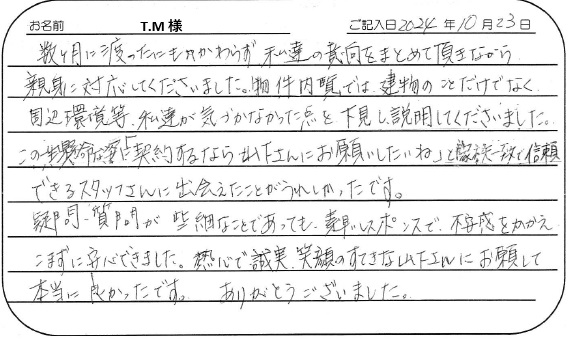 お名前 T.M 様 ご記入日 2024 年 10 月 23 日
数ヶ月に渡ったにもかかわらず 私達の意向をまとめて頂きながら
親身に対応してくださいました。物件内覧では、建物のことだけでなく
周辺環境等、私達が気づかなかった点を下見し説明してくださいました。
この一生懸命な姿に「契約するなら山下さんにお願いしたいね」と家族一致で信頼
できるスタッフさんに出会えたことがうれしかったです。
疑問、質問が些細なことであっても、素早いレスポンスで、不安感をかかえ
こまずに安心できました。熱心で誠実、笑顔のすてきな山下さんにお願いして
本当に良かったです。 ありがとうございました。